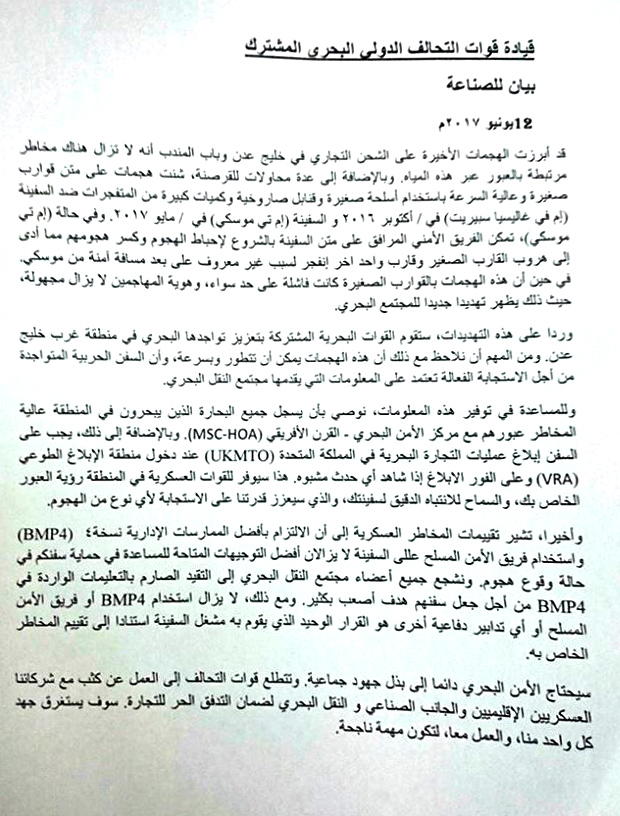 قيادة قوات التحالف الدولي البحري المشترك
بيان للصناعة
12يونيو ٢٠١٧م
قد أبرزت الهجمات الأخيرة على الشحن التجاري في خليج عدن وباب المندب أنه لا تزال هناك مخاطر
مرتبطة بالعبور عبر هذه المياه. وبالإضافة إلى عدة محاولات للقرصنة، شنت هجمات على متن قوارب
صغيرة وعالية السرعة باستخدام أسلحة صغيرة وقنابل صاروخية وكميات كبيرة من المتفجرات ضد السفينة
(إم في غاليسيا سبيريت) في / أكتوبر ٢٠١٦ و السفينة (إم تي موسكي) في / مايو ٢٠١٧. وفي حالة (إم تي
موسكي)، تمكن الفريق الأمني المرافق على متن السفينة بالشروع لإحباط الهجوم وكسر هجومهم مما أدى
إلى هروب القارب الصغير وقارب واحد اخر إنفجر لسبب غير معروف على بعد مسافة آمنة من موسكي.
في حين أن هذه الهجمات بالقوارب الصغيرة كانت فاشلة على حد سواء، وهوية المهاجمين لا يزال مجهولة،
حيث ذلك يظهر تهديدا جديدا للمجتمع البحري.
وردا على هذه التهديدات، ستقوم القوات البحرية المشتركة بتعزيز تواجدها البحري في منطقة غرب خليج
عدن. ومن المهم أن نلاحظ مع ذلك أن هذه الهجمات يمكن أن تتطور وبسرعة، وأن السفن الحربية المتواجدة
من أجل الاستجابة الفعالة تعتمد على المعلومات التي يقدمها مجتمع النقل البحري.
وللمساعدة في توفير هذه المعلومات، نوصي بأن يسجل جميع البحارة الذين يبحرون في المنطقة عالية
المخاطر عبورهم مع مركز الأمن البحري - القرن الأفريقي (MSC-HOA). وبالإضافة إلى ذلك، يجب على
السفن إبلاغ عمليات التجارة البحرية في المملكة المتحدة (UKMTO) عند دخول منطقة الإبلاغ الطوعي
(VRA) وعلى الفور الابلاغ إذا شاهد أي حدث مشبوه. هذا سيوفر للقوات العسكرية في المنطقة رؤية العبور
الخاص بك، والسماح للانتباه الدقيق لسفينتك، والذي سيعزز قدرتنا على الاستجابة لأي نوع من الهجوم.
وأخيرا، تشير تقييمات المخاطر العسكرية إلى أن الالتزام بأفضل الممارسات الإدارية نسخة٤ (BMP4)
واستخدام فريق الأمن المسلح عللى السفينة لا يزالان أفضل التوجيهات المتاحة للمساعدة في حماية سفنكم في
حالة وقوع هجوم. ونشجع جميع أعضاء مجتمع النقل البحري إلى التقيد الصارم بالتعليمات الواردة في
BMP4 من أجل جعل سفنهم هدف أصعب بكثير. ومع ذلك، لا يزال استخدام BMP4 أو فريق الأمن
المسلح أو أي تدابير دفاعية أخرى هو القرار الوحيد الذي يقوم به مشغل السفينة استنادا إلى تقييم المخاطر
الخاص به.
سيحتاج الأمن البحري دائما إلى بذل جهود جماعية. وتتطلع قوات التحالف إلى العمل عن كثب مع شركائنا
العسكريين الإقليميين والجانب الصناعي و النقل البحري لضمان التدفق الحر للتجارة. سوف يستغرق جهد
كل واحد منا، والعمل معا، لتكون مهمة ناجحة.